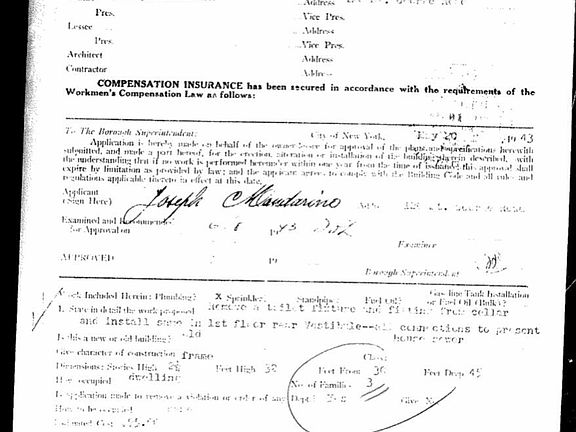 Pres.
Address
Vice Pres.
Lessee
Address
Pres.
Vice Pres.
Architect
Address
Contractor
Address
COMPENSATION INSURANCE has been secured in accordance with the requirements of the
Workmen's Compensation Law as follows:
To The Borough Superintendent:
City of New York, May 20 1943
Application is hereby made on behalf of the owner-lessee for approval of the plans and specifications herewith
submitted, and made a part hereof, for the erection, alteration or installation of the building therein described, with
the understanding that if no work is performed hereunder within one year from the time of issuance, this approval shall
expire by limitation as provided by law; and the applicant agrees to comply with the Building Code and all rules and
regulations applicable thereto in effect at this date.
Applicant
(Sign Here) Joseph Mandarino
Examined and Recommended
for Approval on 6 8 1943
Examiner
APPROVED 19
Borough Superintendent
Work Included Herein: Plumbing? X Sprinkler. Standpipe: Fuel Oil? Gasoline Tank Installation
or Fuel Oil (Bulk)?
1. State in detail the work proposed Remove a toilet fixture and fitting from cellar
and install same in 1st floor rear Vestibule--all connections to present
house sewer
Is this a new or old building? old
Give character of construction frame
Class
Dimensions: Stories High Feet High 32 Feet Front 30 Feet Deep 45
How occupied dwelling
No. of Families 3
Is application made to remove a violation or order of any Dept? Give No.
How to be occupied
Estimated Cost